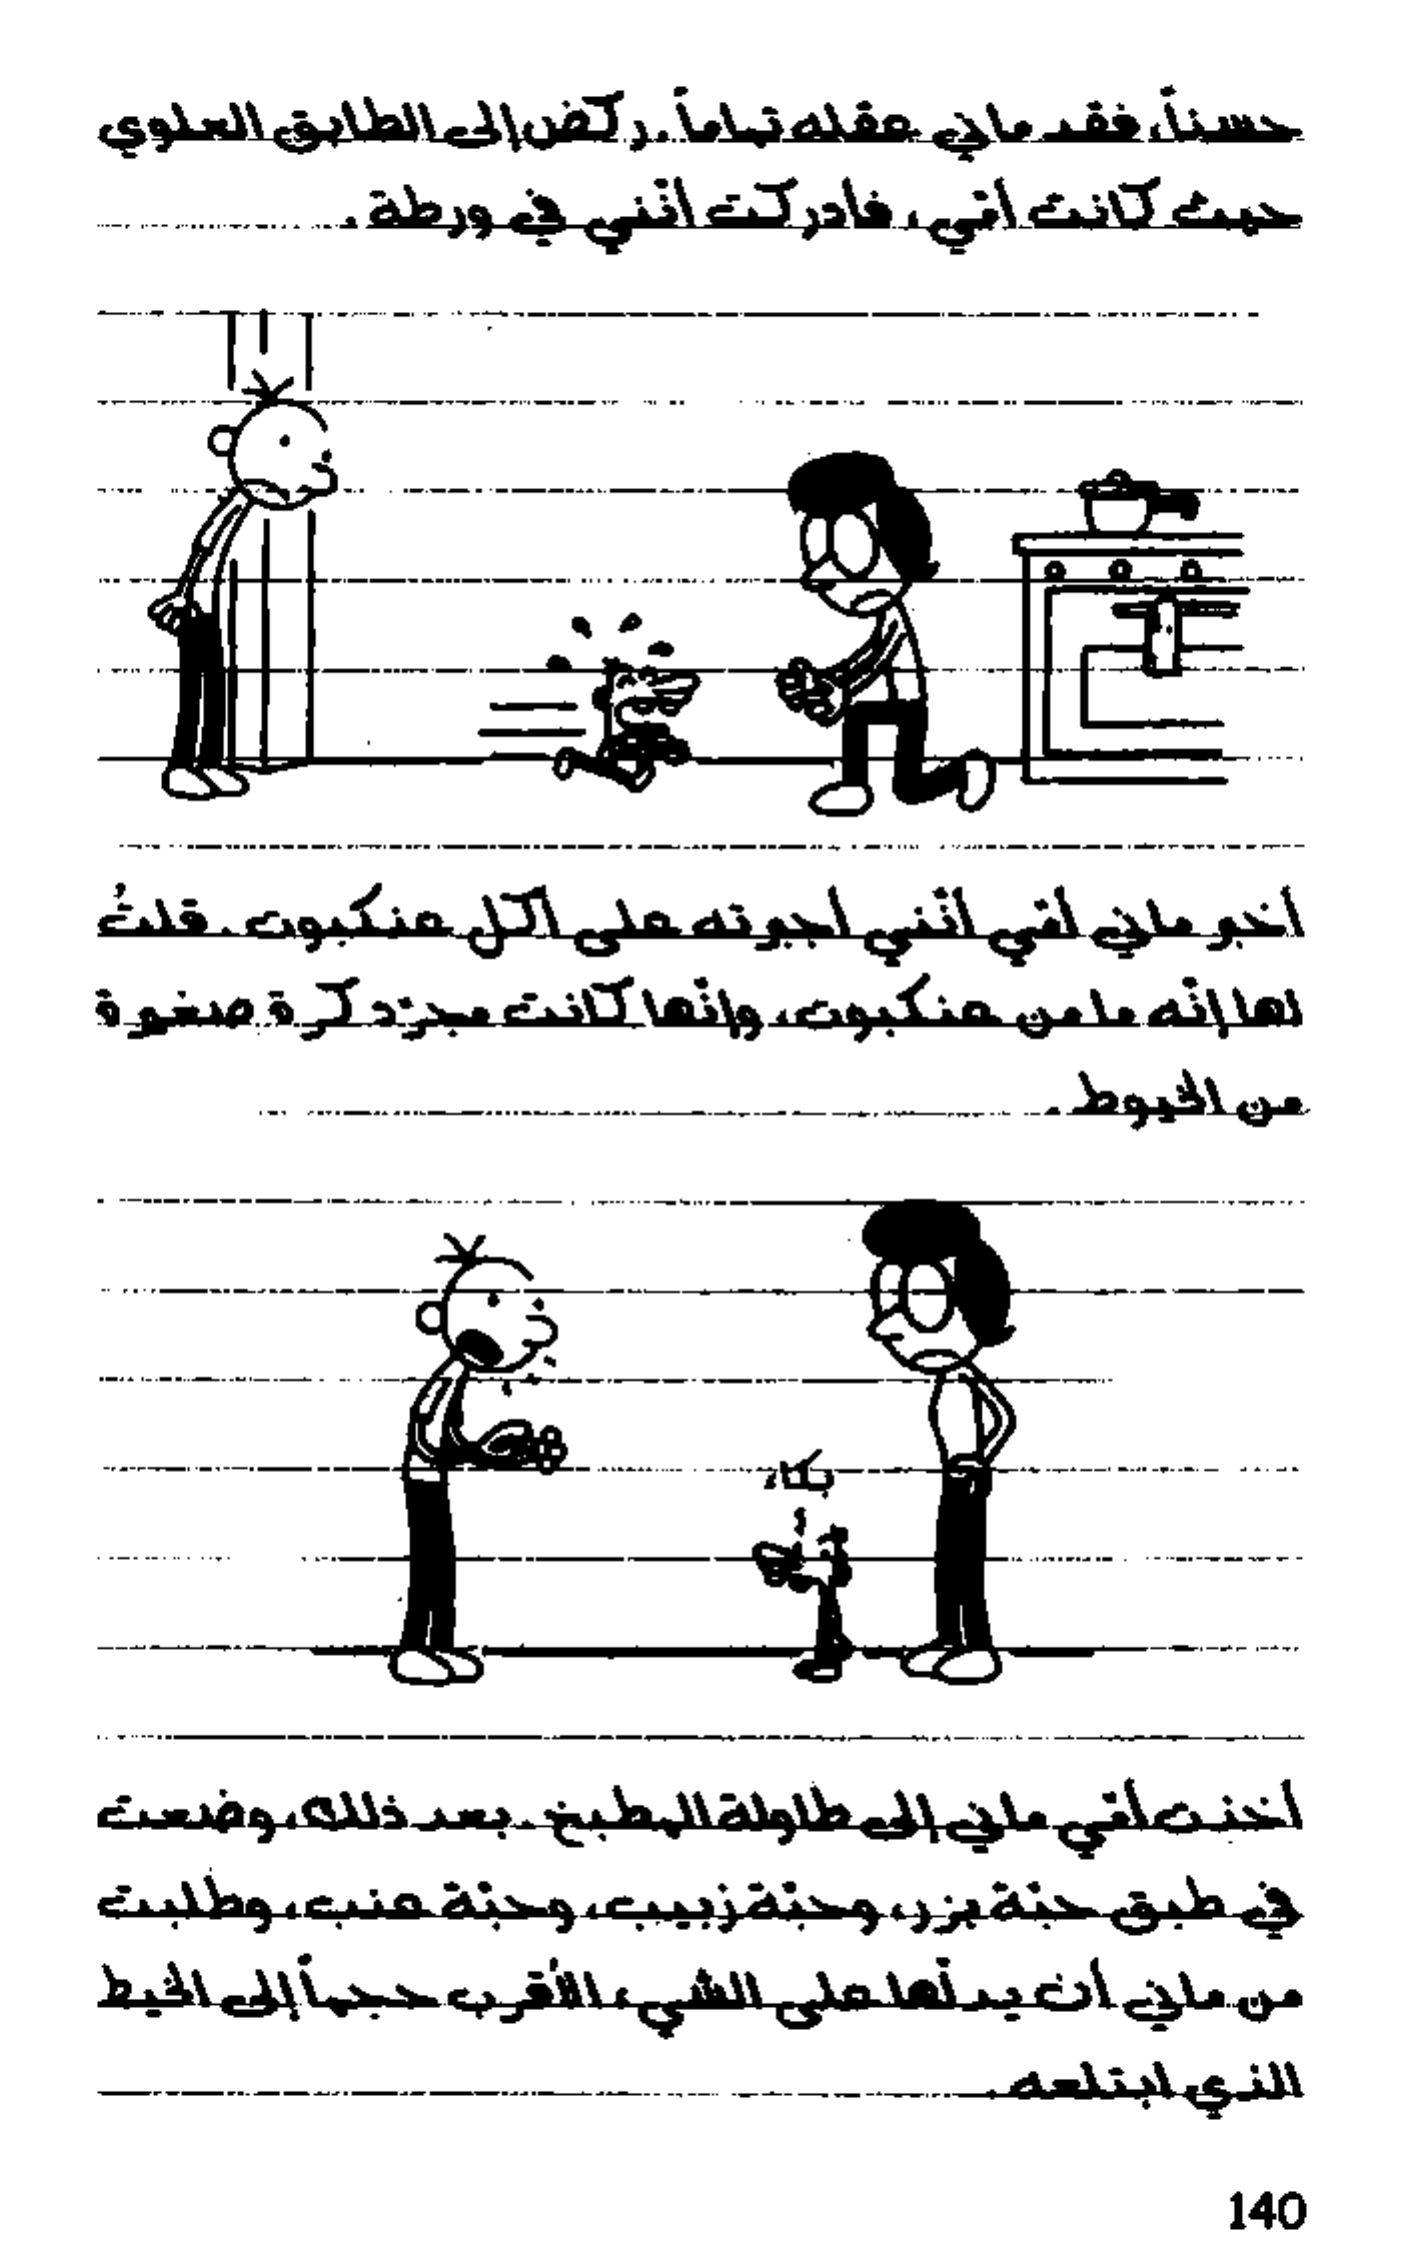 حسناً، فقد ماني عقله تماماً. ركض إلى الطابق العلوي
حيث كانت أمّي، فأدركت أنّني في ورطة.
أخبر ماني أمّي أنّني أجبرته على أكل عنكبوت. قلتُ
لها إنّه ما من عنكبوت، وإنّها كانت مجرّد كرة صغيرة
من الخيوط.
بكاء
أخذت أمّي ماني إلى طاولة المطبخ. بعد ذلك، وضعت
في طبق حبّة بزر، وحبّة زبيب، وحبّة عنب، وطلبت
من ماني أن يدلّها على الشيء الأقرب حجماً إلى الخيط
الذي ابتلعه.
140